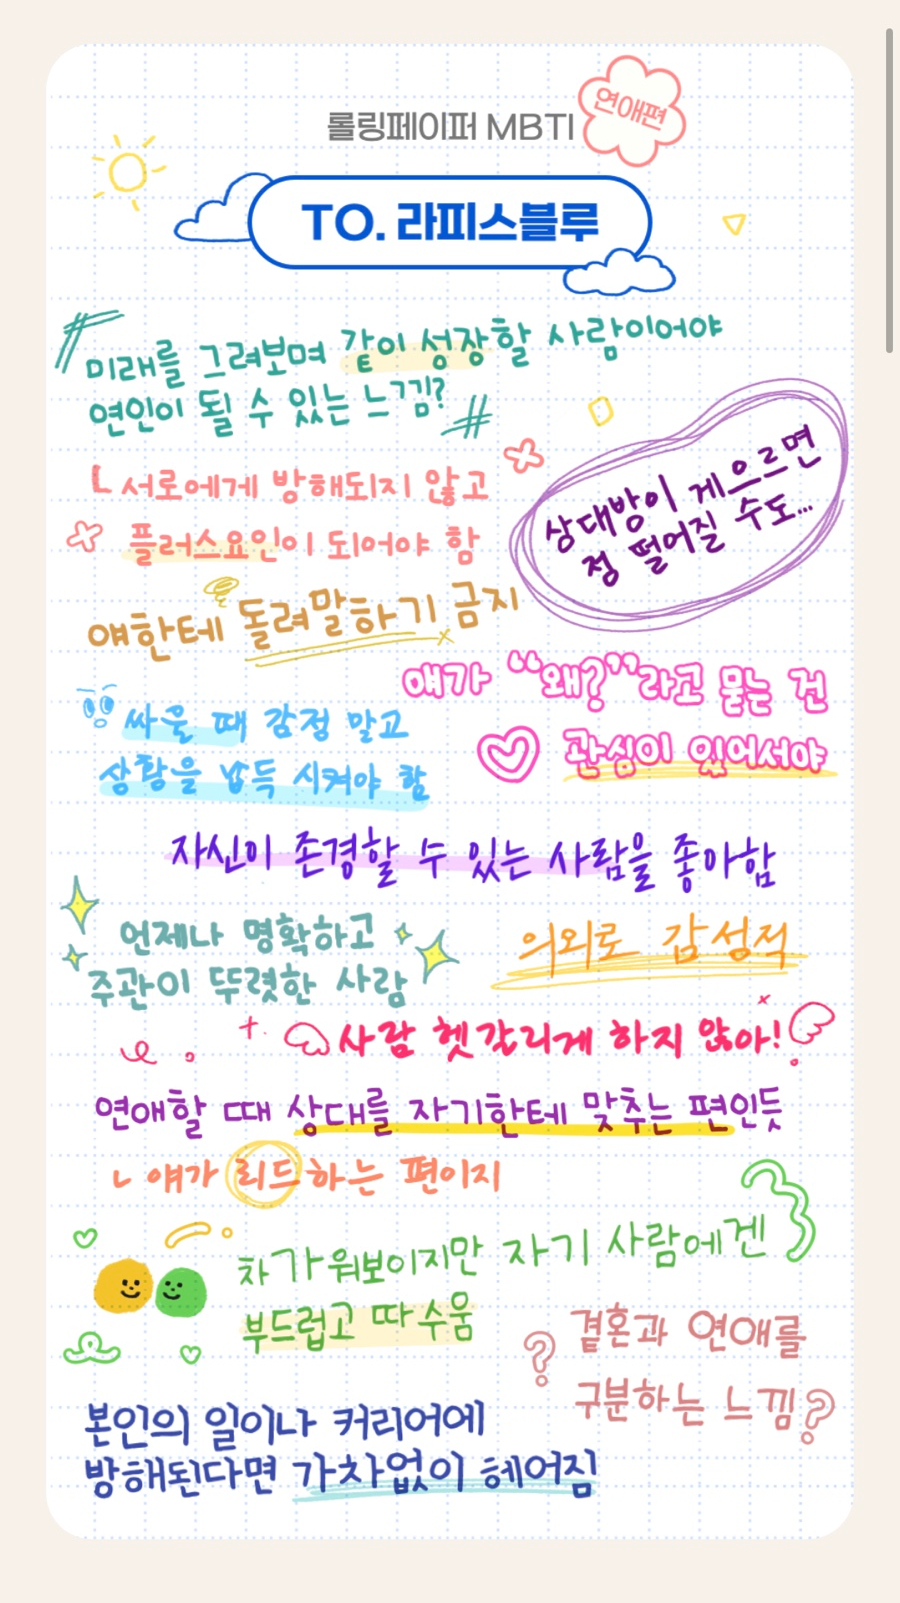 롤링페이퍼 MBTI
연애편
TO. 라피스블루
미래를 그려보며 같이 성장할 사람이어야
연인이 될 수 있는 느낌?
ㄴ 서로에게 방해되지 않고
플러스요인이 되어야 함
상대방이 게으르면
정 떨어질 수도...
얘한테 돌려말하기 금지
얘가 “왜?”라고 묻는 건
관심이 있어서야
싸울 때 감정 말고
상황을 납득 시켜야 함
자신이 존경할 수 있는 사람을 좋아함
언제나 명확하고
주관이 뚜렷한 사람
의외로 감성적
사람 헷갈리게 하지 않아!
연애할 때 상대를 자기한테 맞추는 편인듯
ㄴ 얘가 리드하는 편이지
차가워보이지만 자기 사람에겐
부드럽고 따수움
결혼과 연애를
구분하는 느낌?
본인의 일이나 커리어에
방해된다면 가차없이 헤어짐